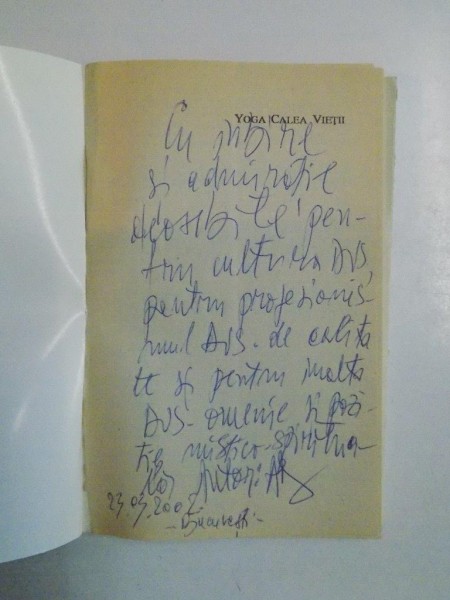 YOGA CALEA VIEȚII
Cu iubire
și admirație
deosebite pen-
tru cultura DVS,
pentru profesionis-
mul DVS. de calita
te și pentru înalta
DVS. omenie și pozi-
ție mistico-spiritua-
lă, Autor:
23.03.2002
- București -